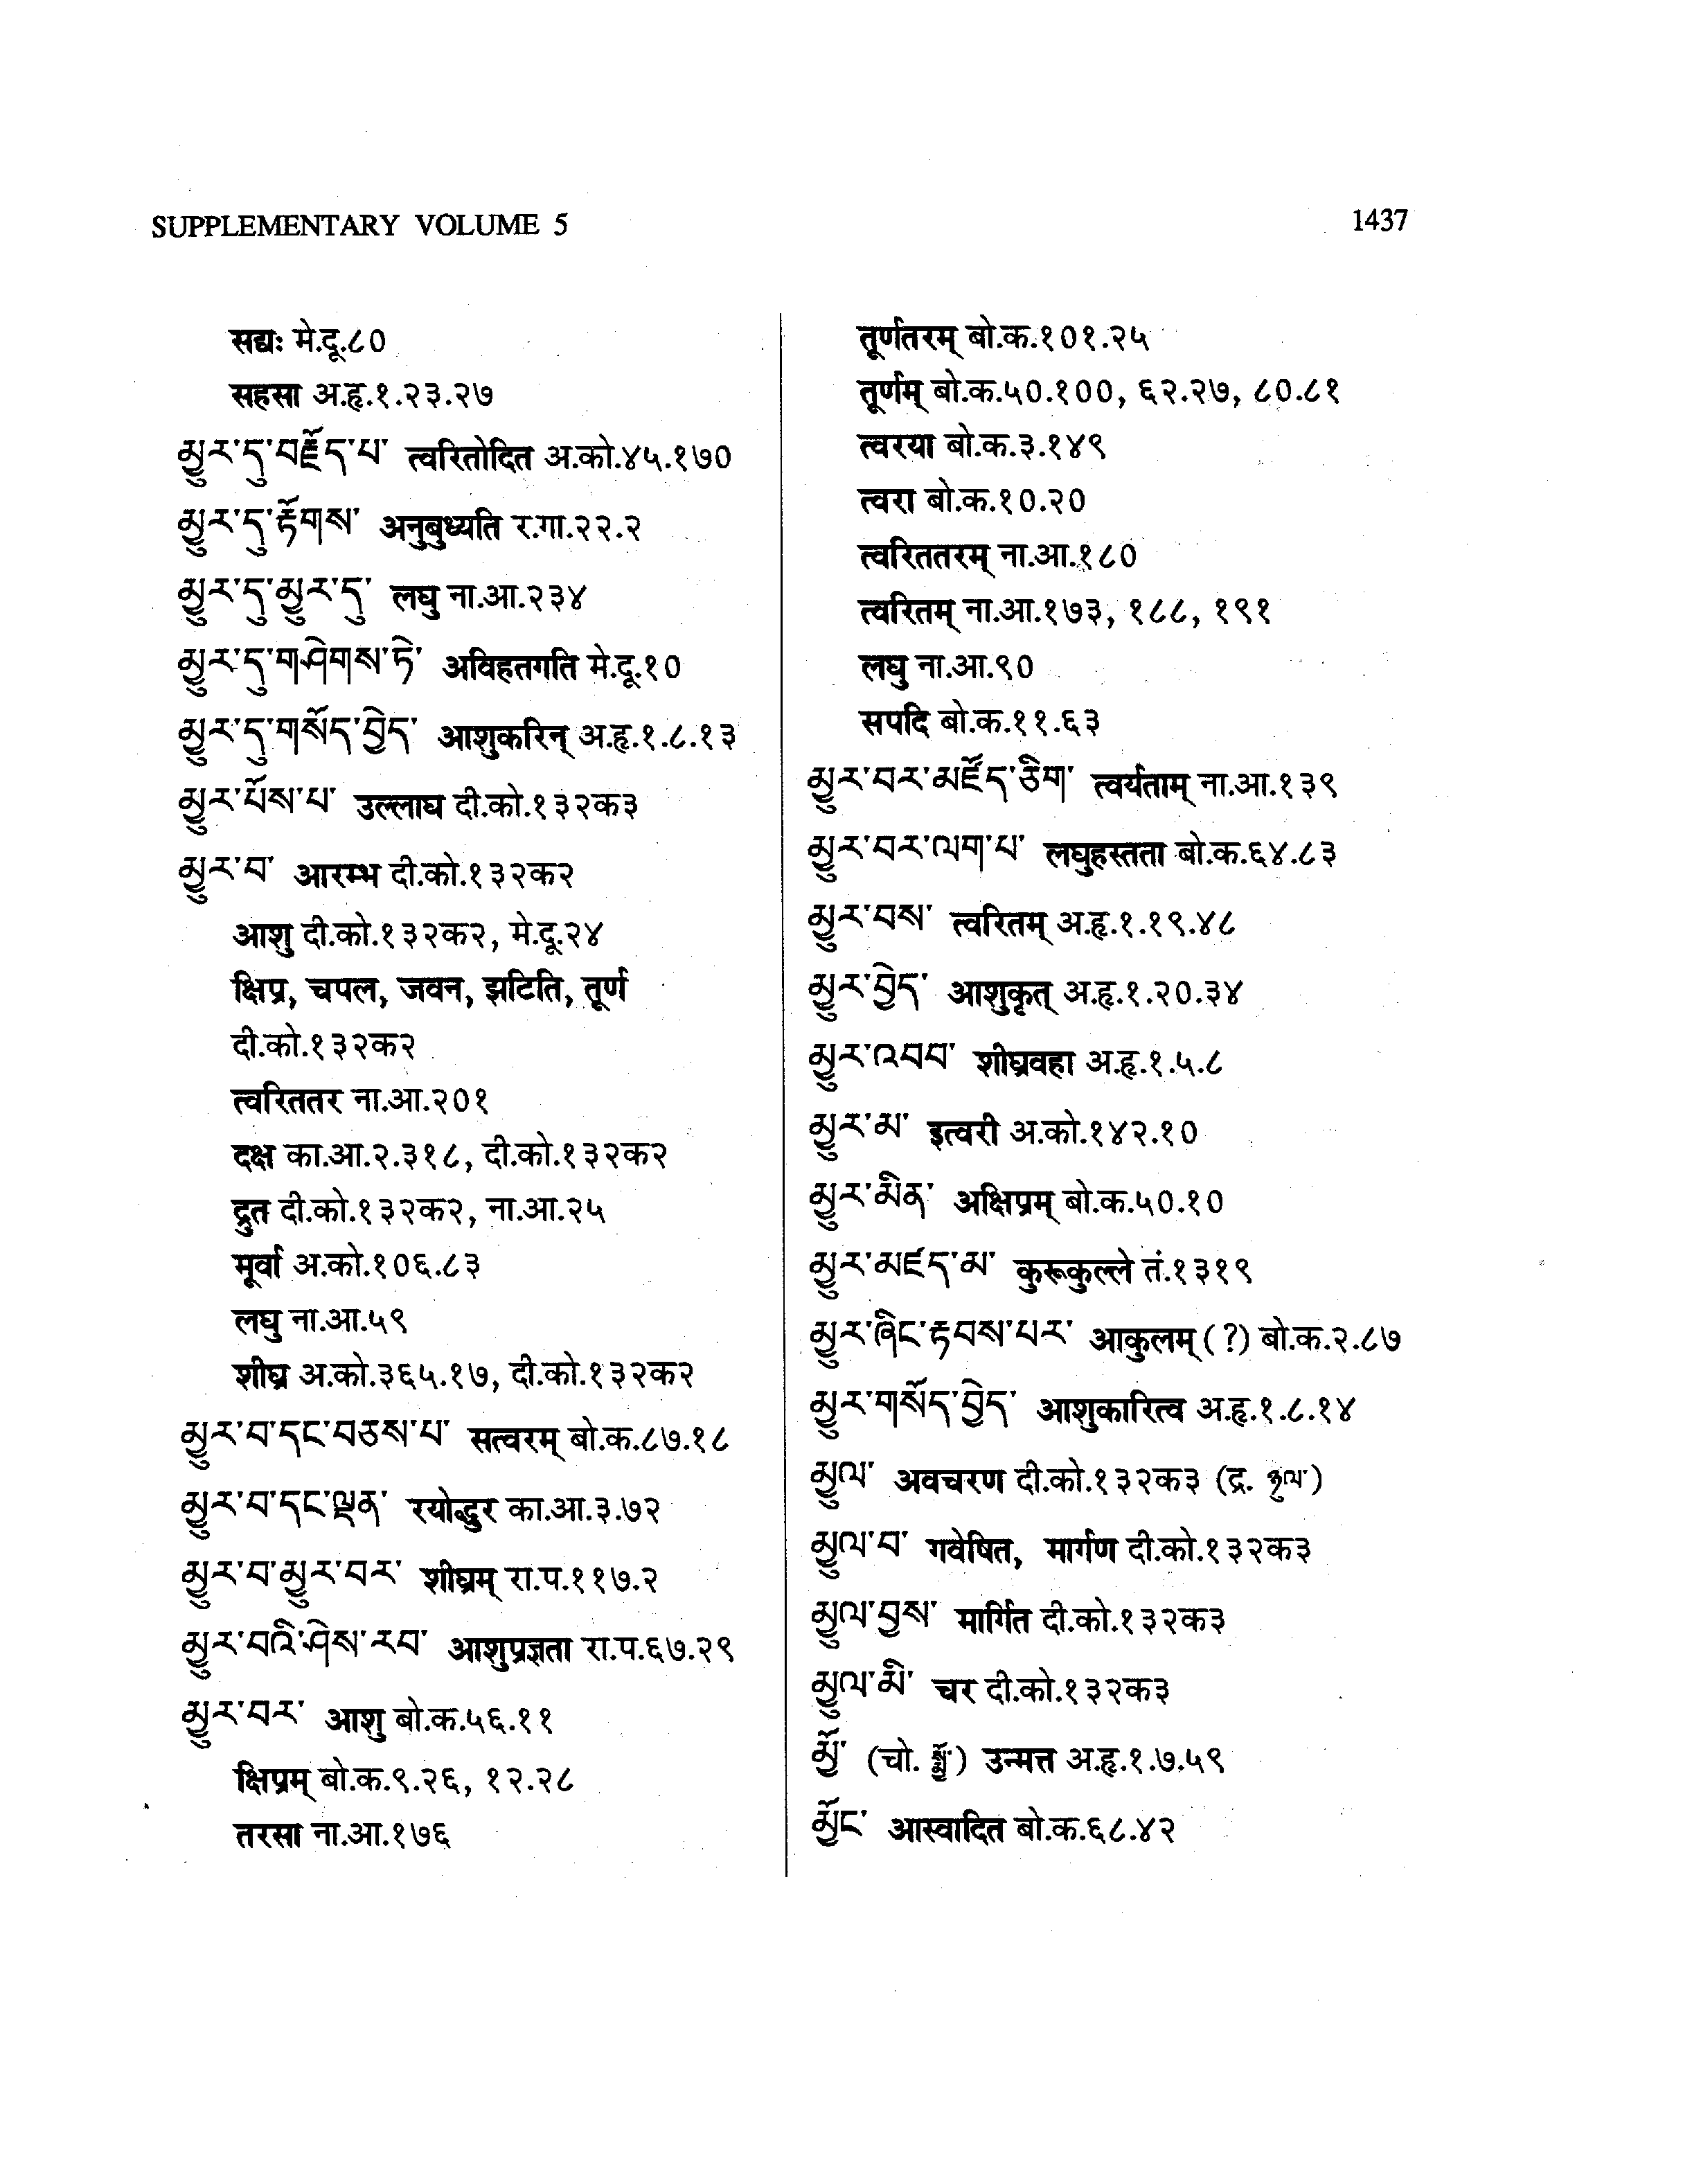 SUPPLEMENTARY VOLUME 5
1437
सद्यः मे.दू.८०
सहसा अ.हृ.१.२३.२७
མྱུར་དུ་བརྗོད་པ་ त्वरितोदित अ.को.४५.१७०
མྱུར་དུ་རྟོགས་ अनुबुध्यति र.गा.२२.२
མྱུར་དུ་མྱུར་དུ་ लघु ना.आ.२३४
མྱུར་དུ་གཤེགས་ཏེ་ अविहतगति मे.दू.१०
མྱུར་དུ་གསོད་བྱེད་ आशुकरिन् अ.हृ.१.८.१३
མྱུར་པོས་པ་ उल्लाघ दी.को.१३२क३
མྱུར་བ་ आरम्भ दी.को.१३२क२
आशु दी.को.१३२क२, मे.दू.२४
क्षिप्र, चपल, जवन, झटिति, तूर्ण
दी.को.१३२क२
त्वरिततर ना.आ.२०१
दक्ष का.आ.२.३१८, दी.को.१३२क२
द्रुत दी.को.१३२क२, ना.आ.२५
मूर्वा अ.को.१०६.८३
लघु ना.आ.५९
शीघ्र अ.को.३६५.१७, दी.को.१३२क२
མྱུར་བ་དང་བཅས་པ་ सत्वरम् बो.क.८७.१८
མྱུར་བ་དང་ལྡན་ रयोद्धुर का.आ.३.७२
མྱུར་བ་མྱུར་བར་ शीघ्रम् रा.प.११७.२
མྱུར་བའི་ཤེས་རབ་ आशुप्रज्ञता रा.प.६७.२९
མྱུར་བར་ आशु बो.क.५६.११
क्षिप्रम् बो.क.९.२६, १२.२८
तरसा ना.आ.१७६
तूर्णतरम् बो.क.१०१.२५
तूर्णम् बो.क.५०.१००, ६२.२७, ८०.८१
त्वरया बो.क.३.१४९
त्वरा बो.क.१०.२०
त्वरिततरम् ना.आ.१८०
त्वरितम् ना.आ.१७३, १८८, १९१
लघु ना.आ.९०
सपदि बो.क.११.६३
མྱུར་བར་མཛོད་ཅིག་ त्वर्यताम् ना.आ.१३९
མྱུར་བར་ལག་པ་ लघुहस्तता बो.क.६४.८३
མྱུར་བས་ त्वरितम् अ.हृ.१.१९.४८
མྱུར་བྱེད་ आशुकृत् अ.हृ.१.२०.३४
མྱུར་འབབ་ शीघ्रवहा अ.हृ.१.५.८
མྱུར་མ་ इत्वरी अ.को.१४२.१०
མྱུར་མིན་ अक्षिप्रम् बो.क.५०.१०
མྱུར་མཛད་མ་ कुरूकुल्ले तं.१३१९
མྱུར་ཞིང་རྟབས་པར་ आकुलम् (?) बो.क.२.८७
མྱུར་གསོད་བྱེད་ आशुकारित्व अ.हृ.१.८.१४
མྱུལ་ अवचरण दी.को.१३२क३ (द्र. ཉུལ་)
མྱུལ་བ་ गवेषित, मार्गण दी.को.१३२क३
མྱུལ་བྱས་ मार्गित दी.को.१३२क३
མྱུལ་མི་ चर दी.को.१३२क३
མྱོ་ (चो. སྨྱོ་) उन्मत्त अ.हृ.१.७.५९
མྱོང་ आस्वादित बो.क.६८.४२